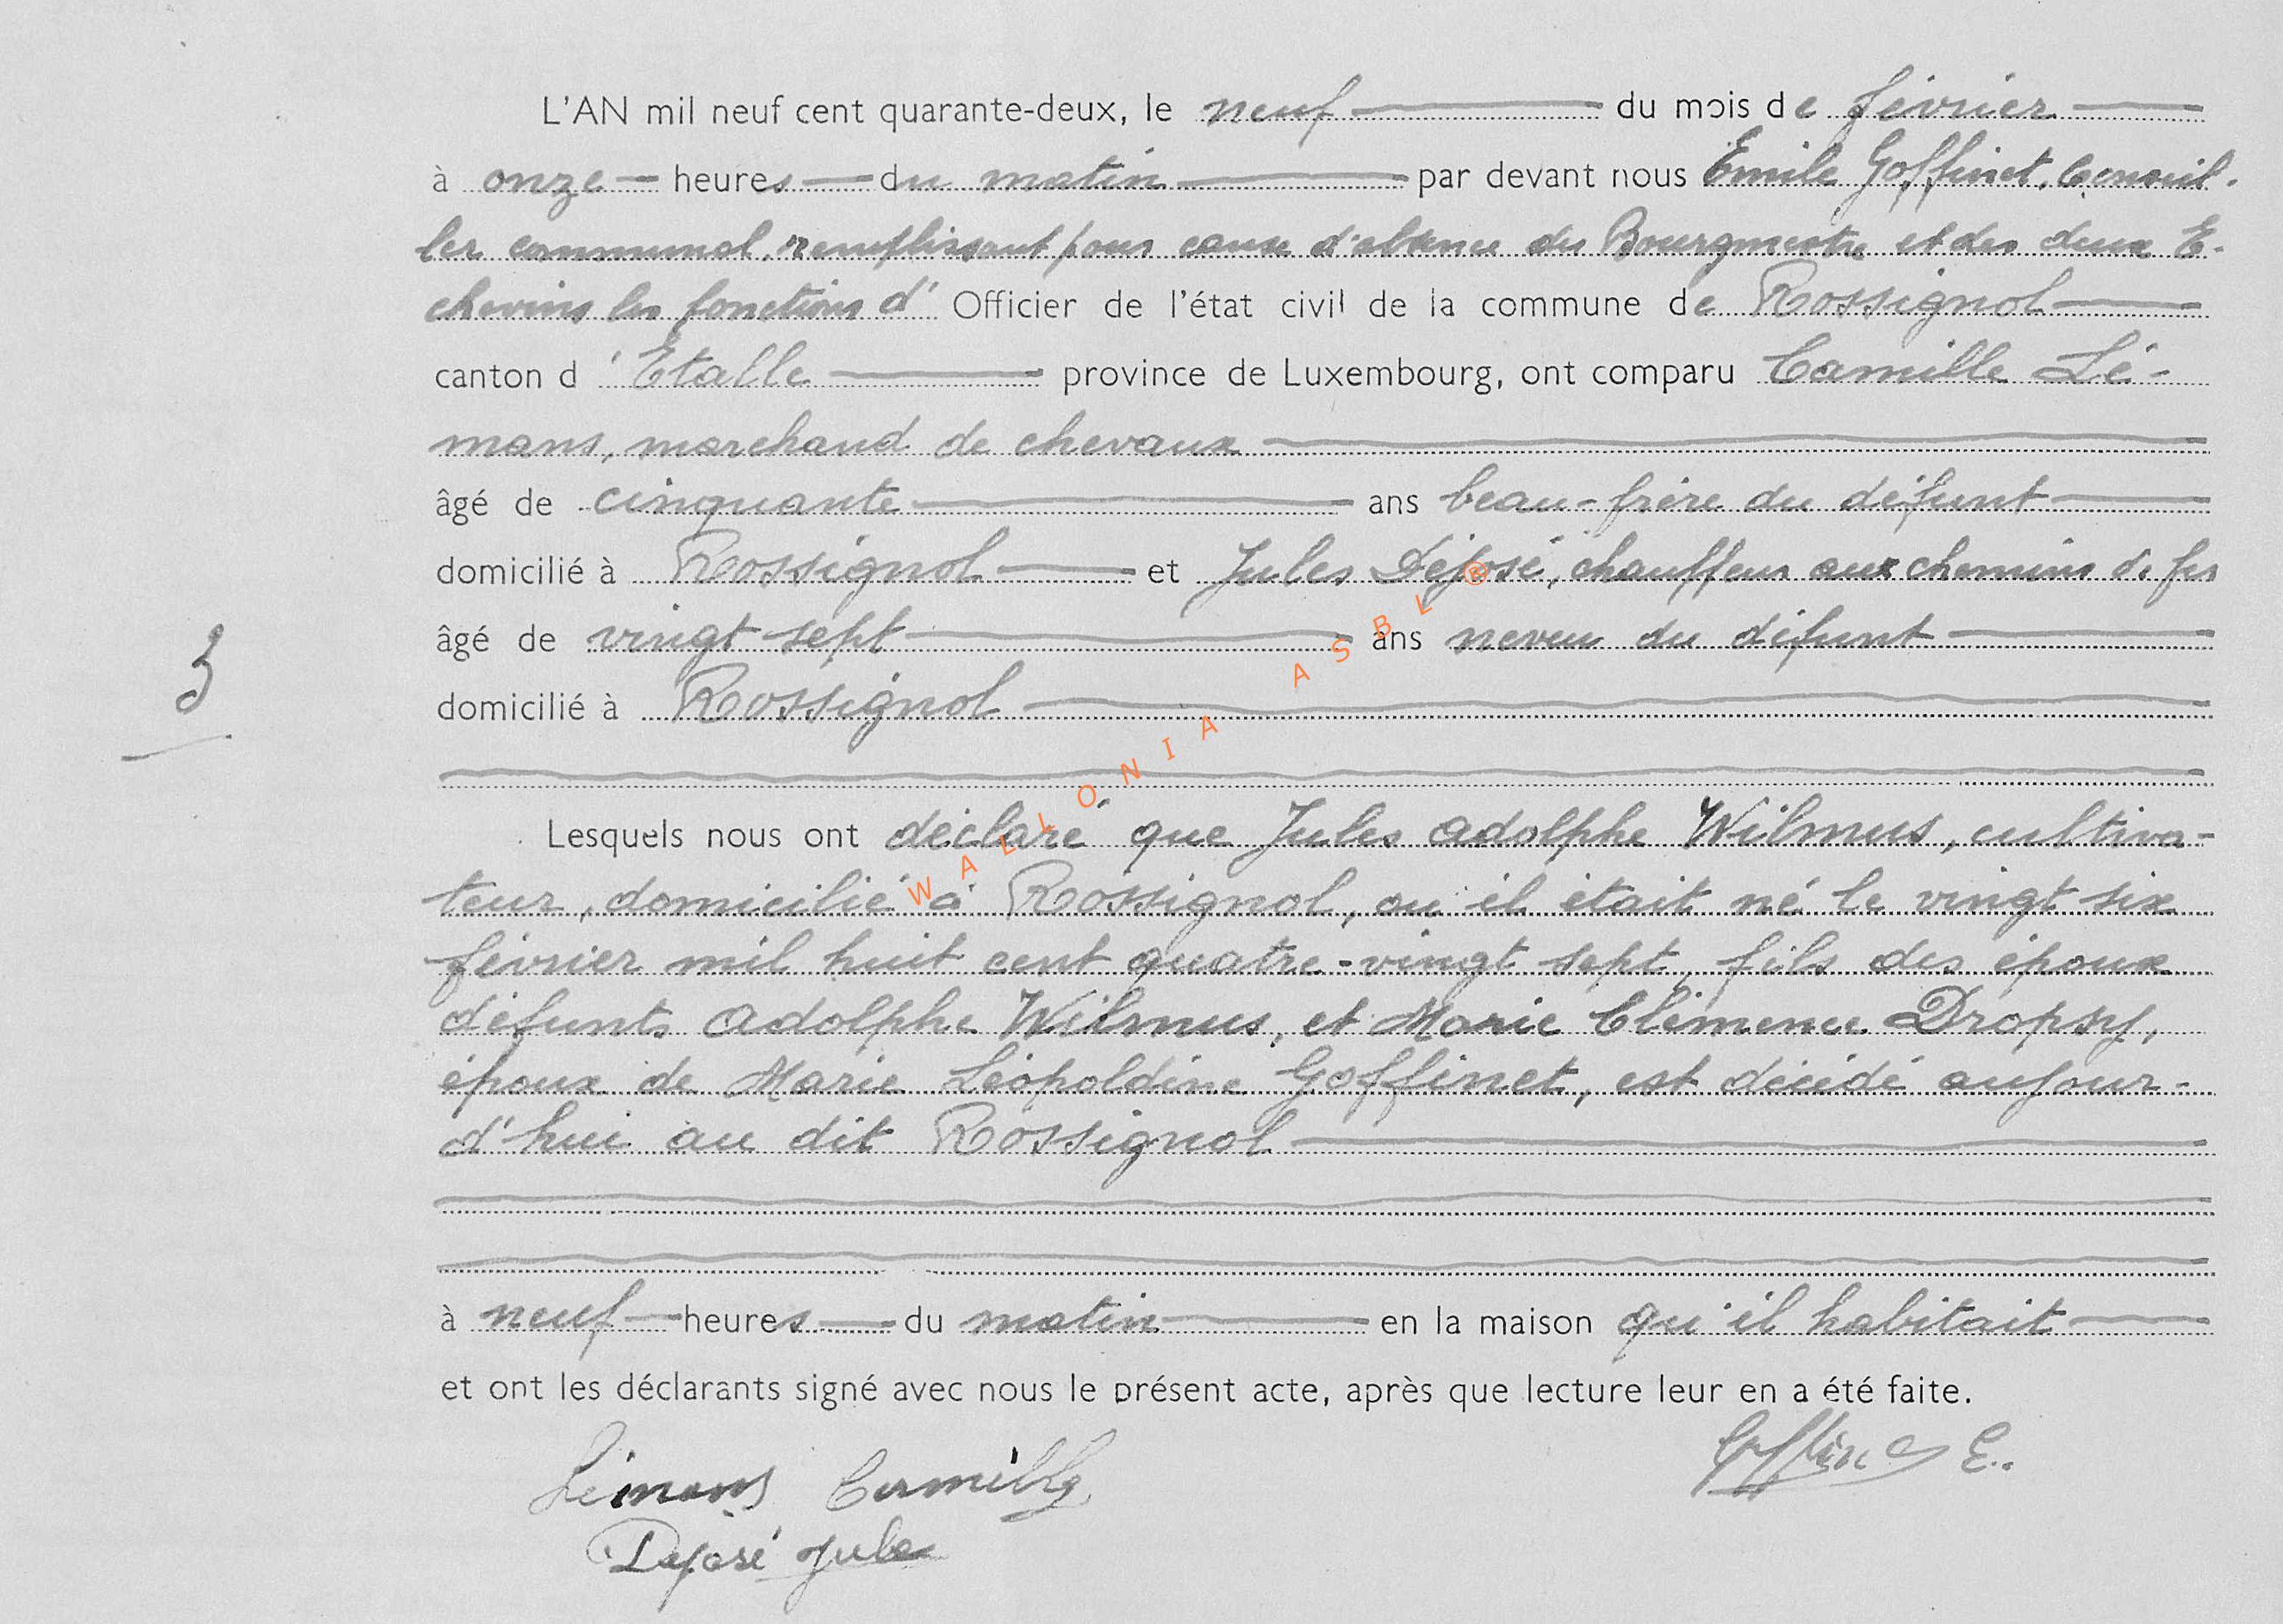 L'AN mil neuf cent quarante-deux, le neuf du mois de février
à onze heures du matin par devant nous Emile Goffinet, Conseil-
ler communal, remplissant pour cause d'absence du Bourgmestre et des deux E-
chevins les fonctions d' Officier de l'état civil de la commune de Rossignol
canton d 'Etalle province de Luxembourg, ont comparu Camille Lé-
mans, marchand de chevaux
âgé de cinquante ans beau-frère du défunt
domicilié à Rossignol et Jules Déjosé, chauffeur aux chemins de fer
âgé de vingt sept ans neveu du défunt
3
domicilié à Rossignol
Lesquels nous ont déclaré que Jules Adolphe Wilmus, cultiva-
teur, domicilié à Rossignol, ou il était né le vingt six
février mil huit cent quatre-vingt sept, fils des époux
défunts Adolphe Wilmus, et Marie Clémence Dropsy,
époux de Marie Léopoldine Goffinet, est décédé aujour-
d'hui au dit Rossignol
à neuf heures du matin en la maison qu'il habitait
et ont les déclarants signé avec nous le présent acte, après que lecture leur en a été faite.
Goffinet E.
Lémans Camille
Dejosé Jules
WALLONIA ASBL®